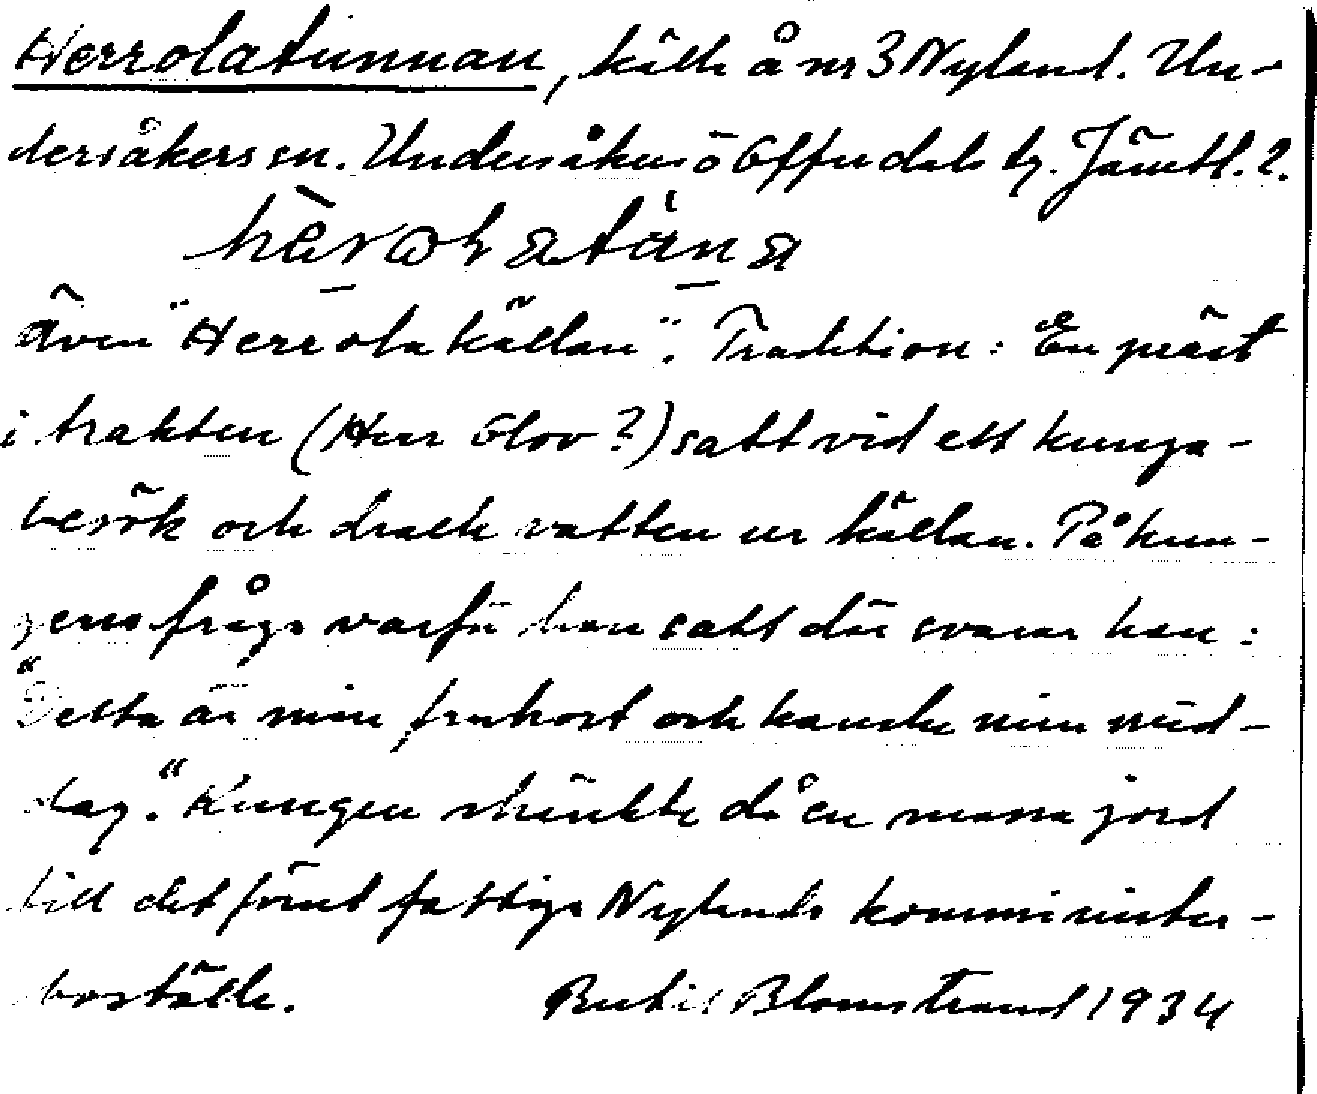 Herrolatunnan, källa å nr 3 Nyland. Un-
dersåkers sn. Undersåkers o Offerdals tg. Jämtl. l.
även "Herrolakällan". Tradition: En präst
i trakten (Herr Olov?) satt vid ett kunga-
besök och drack vatten ur källan. På kun-
gens fråga varför han satt där svarar han:
"Detta är min frukost och kanske min mid-
dag." Kungen skänkte då en massa jord
till det förut fattiga Nylands komminister-
boställe. Bertil Blomstrand 1934